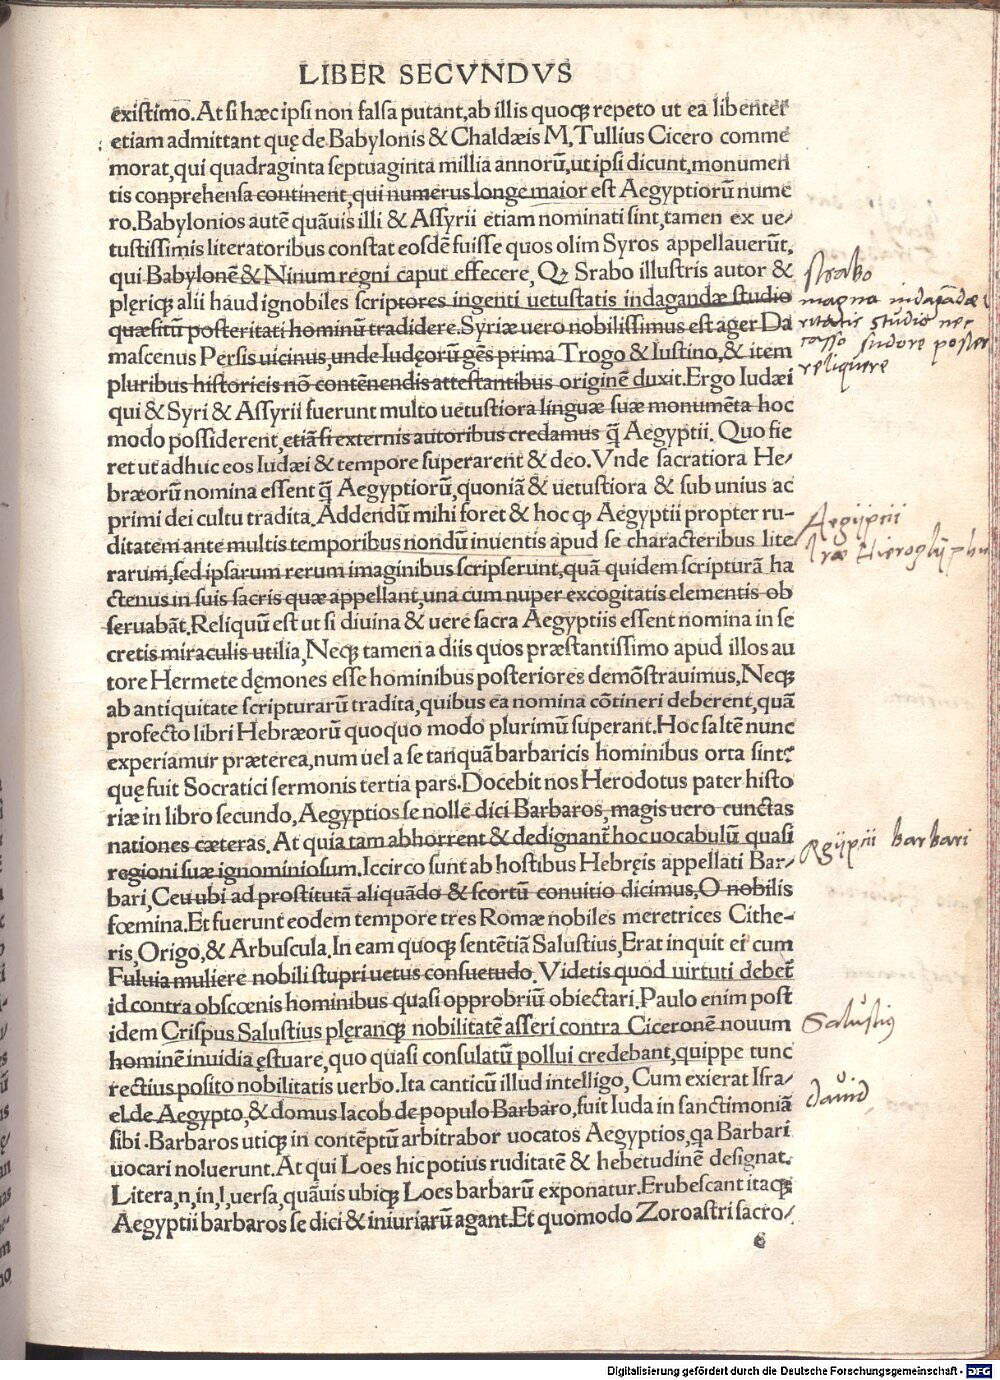 LIBER SECVNDVS
existimo. At si hæc ipsi non falsa putant, ab illis quoqꝫ repeto ut ea libenter
etiam admittant quę de Babylonis & Chaldæis M. Tullius Cicero comme
morat, qui quadraginta septuaginta millia annorū, ut ipsi dicunt, monumen
tis conprehensa continent, qui numerus longe maior est Aegyptiorū nume
ro. Babylonios autē quāuis illi & Assyrii etiam nominati sint, tamen ex ue/
tustissimis literatoribus constat eosdē fuisse quos olim Syros appellauerūt,
qui Babylonē & Ninum regni caput effecere, Qꝫ Srabo illustris autor &
plęriqꝫ alii haud ignobiles scriptores ingenti uetustatis indagandæ studio
quæsitū posteritati hominū tradidere. Syriæ uero nobilissimus est ager Da
mascenus Persis uicinus, unde Iudęorū gēs prima Trogo & Iustino, & item
pluribus historicis nō contēnendis attestantibus originē duxit. Ergo Iudæi
qui & Syri & Assyrii fuerunt multo uetustiora linguæ suæ monumēta hoc
modo possiderent, etiā si externis autoribus credamus q̄ Aegyptii. Quo fie
ret ut adhuc eos Iudæi & tempore superarent & deo. Vnde sacratiora He/
bræorū nomina essent q̄ Aegyptiorū, quoniā & uetustiora & sub unius ac
primi dei cultu tradita. Addendū mihi foret & hoc ꝙ Aegyptii propter ru-
ditatem ante multis temporibus nondū inuentis apud se characteribus lite
rarum, sed ipsarum rerum imaginibus scripserunt, quā quidem scripturā ha
ctenus in suis sacris quæ appellant, una cum nuper excogitatis elementis ob
seruabāt. Reliquū est ut si diuina & uere sacra Aegyptiis essent nomina in se
cretis miraculis utilia, Neqꝫ tamen a diis quos præstantissimo apud illos au
tore Hermete dęmones esse hominibus posteriores demōstrauimus, Neqꝫ
ab antiquitate scripturarū tradita, quibus ea nomina cōtineri deberent, quā
profecto libri Hebræorū quoquo modo plurimū superant. Hoc saltē nunc
experiamur præterea, num uel a se tanquā barbaricis hominibus orta sint?
quę fuit Socratici sermonis tertia pars. Docebit nos Herodotus pater histo
riæ in libro secundo, Aegyptios se nolle dici Barbaros, magis uero cunctas
nationes cæteras. At quia tam abhorrent & dedignant̄ hoc uocabulū quasi
regioni suæ ignominiosum. Iccirco sunt ab hostibus Hebręis appellati Bar/
bari, Ceu ubi ad prostitutā aliquādo & scortū conuitio dicimus, O nobilis
fœmina. Et fuerunt eodem tempore tres Romæ nobiles meretrices Cithe-
ris, Origo, & Arbuscula. In eam quoqꝫ sentētiā Salustius, Erat inquit ei cum
Fuluia muliere nobili stupri uetus consuetudo. Videtis quod uirtuti debet̄
id contra obscœnis hominibus quasi opprobriū obiectari. Paulo enim post
idem Crispus Salustius plęranqꝫ nobilitatē asseri contra Ciceronē nouum
hominē inuidia ęstuare, quo quasi consulatū pollui credebant, quippe tunc
rectius posito nobilitatis uerbo. Ita canticū illud intelligo, Cum exierat Isra/
el de Aegypto, & domus Iacob de populo Barbaro, fuit Iuda in sanctimoniā
sibi. Barbaros utiqꝫ in contēptū arbitrabor uocatos Aegyptios, qa Barbari
uocari noluerunt. At qui Loes hic potius ruditatē & hebetudinē designat.
Litera, n, in, l, uersa, quāuis ubiqꝫ Loes barbarū exponatur. Erubescant itaqꝫ
Aegyptii barbaros se dici & iniuriarū agant. Et quomodo Zoroastri sacro/
e
strabo
magna indagādæ
studio nec
sudore poster
reliquere
Aegijptii
lræ Hieroglijphu
Aegijptii barbari
Salustius
david
Digitalisierung gefördert durch die Deutsche Forschungsgemeinschaft - DFG